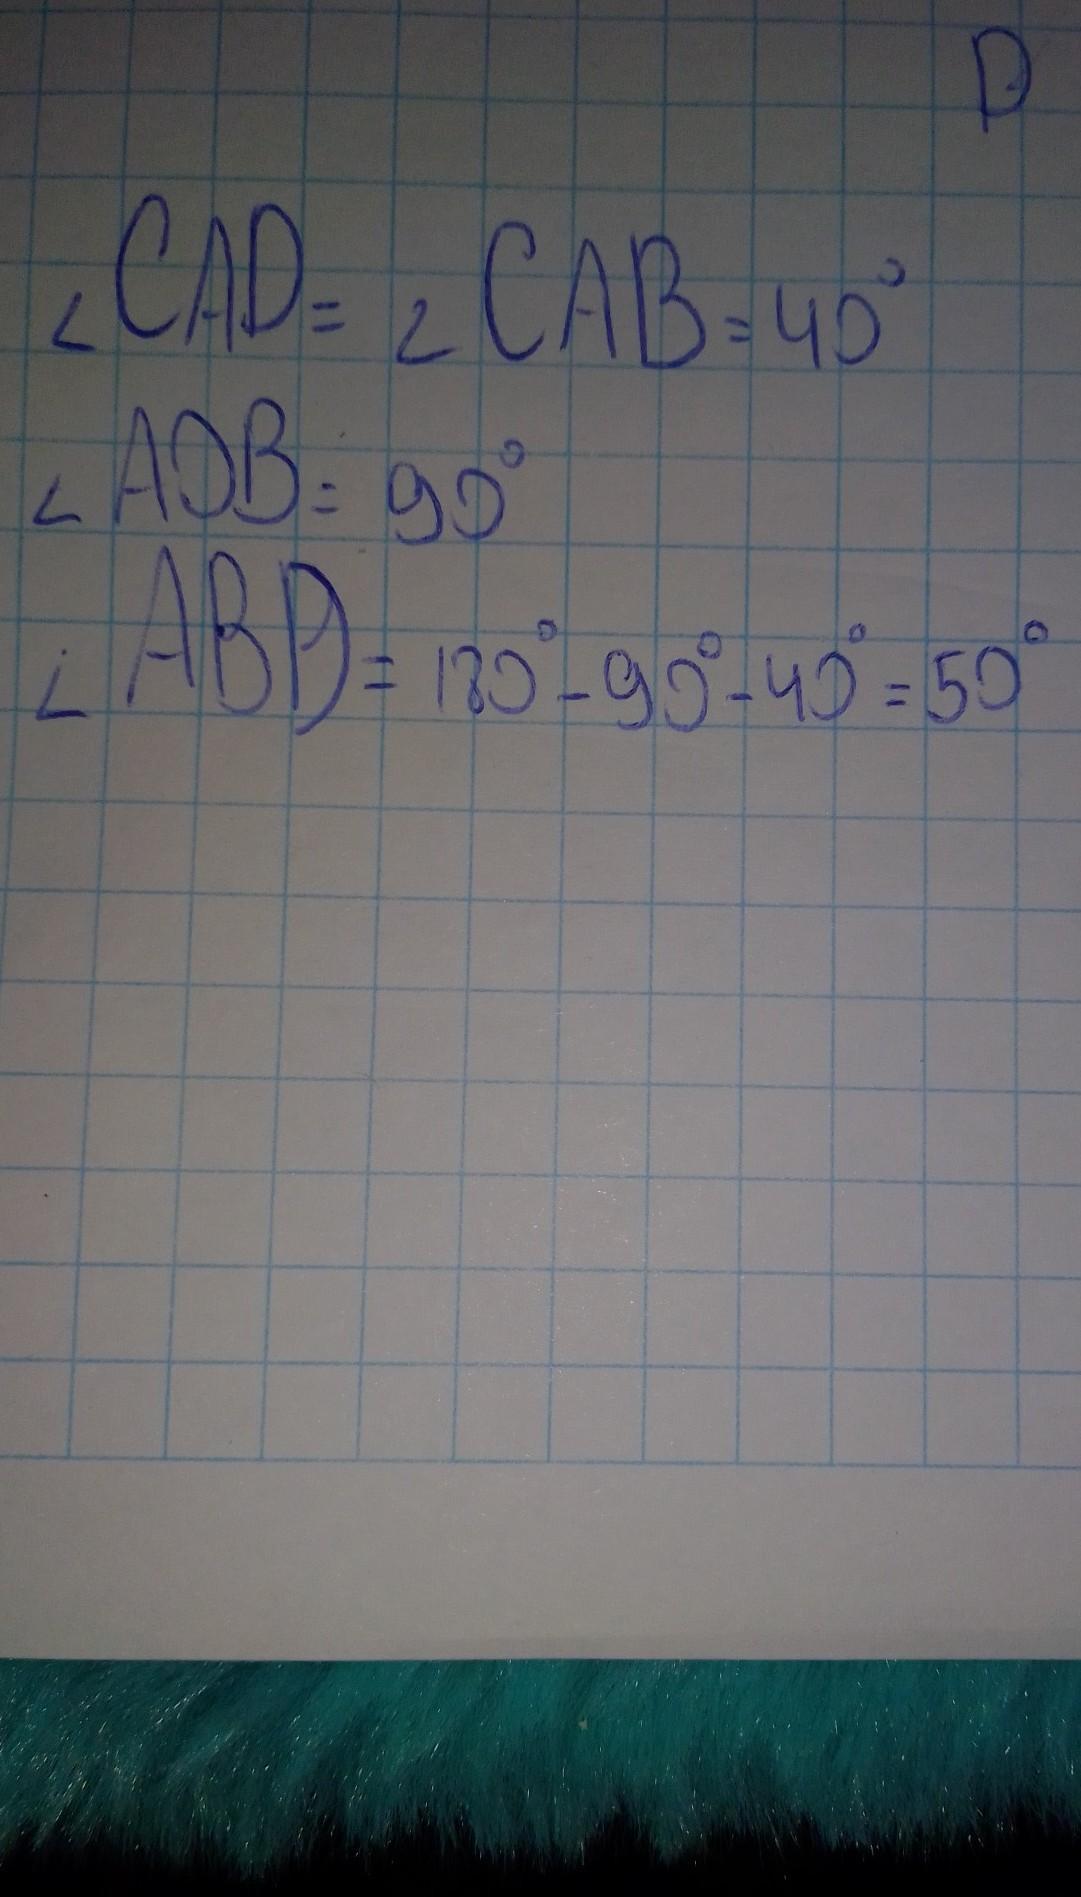 D
∠CAD = ∠CAB = 40°
∠AOB = 90°
∠ABD = 180° - 90° - 40° = 50°